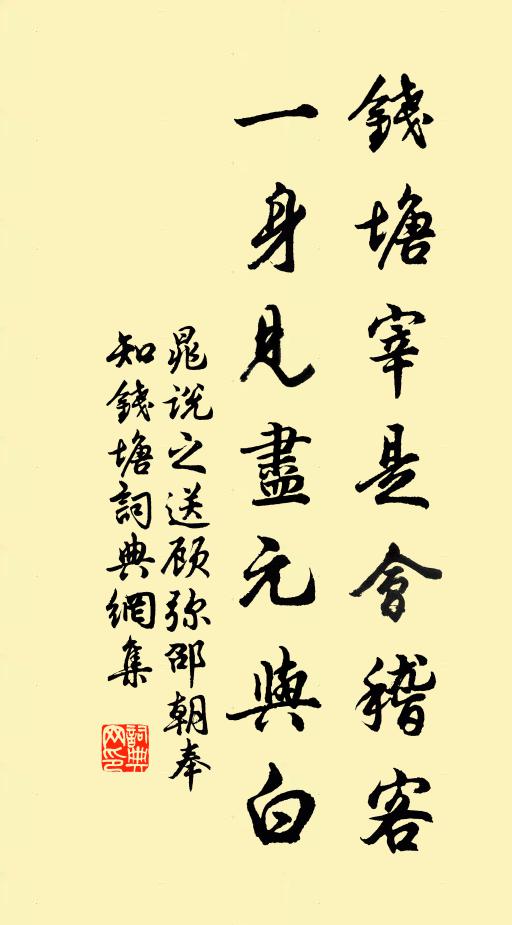 錢塘宰是會稽客
一身見盡元與白
晁説之送顾弥邵朝奉
知錢塘詞典網集
詞典网印